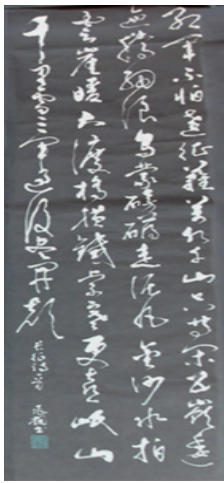 红军不怕远征难万水千山只等闲五岭逶
迤腾细浪乌蒙磅礴走泥丸金沙水拍
云崖暖大渡桥横铁索寒更喜岷山
千里雪三军过后尽开颜
长征诗一首